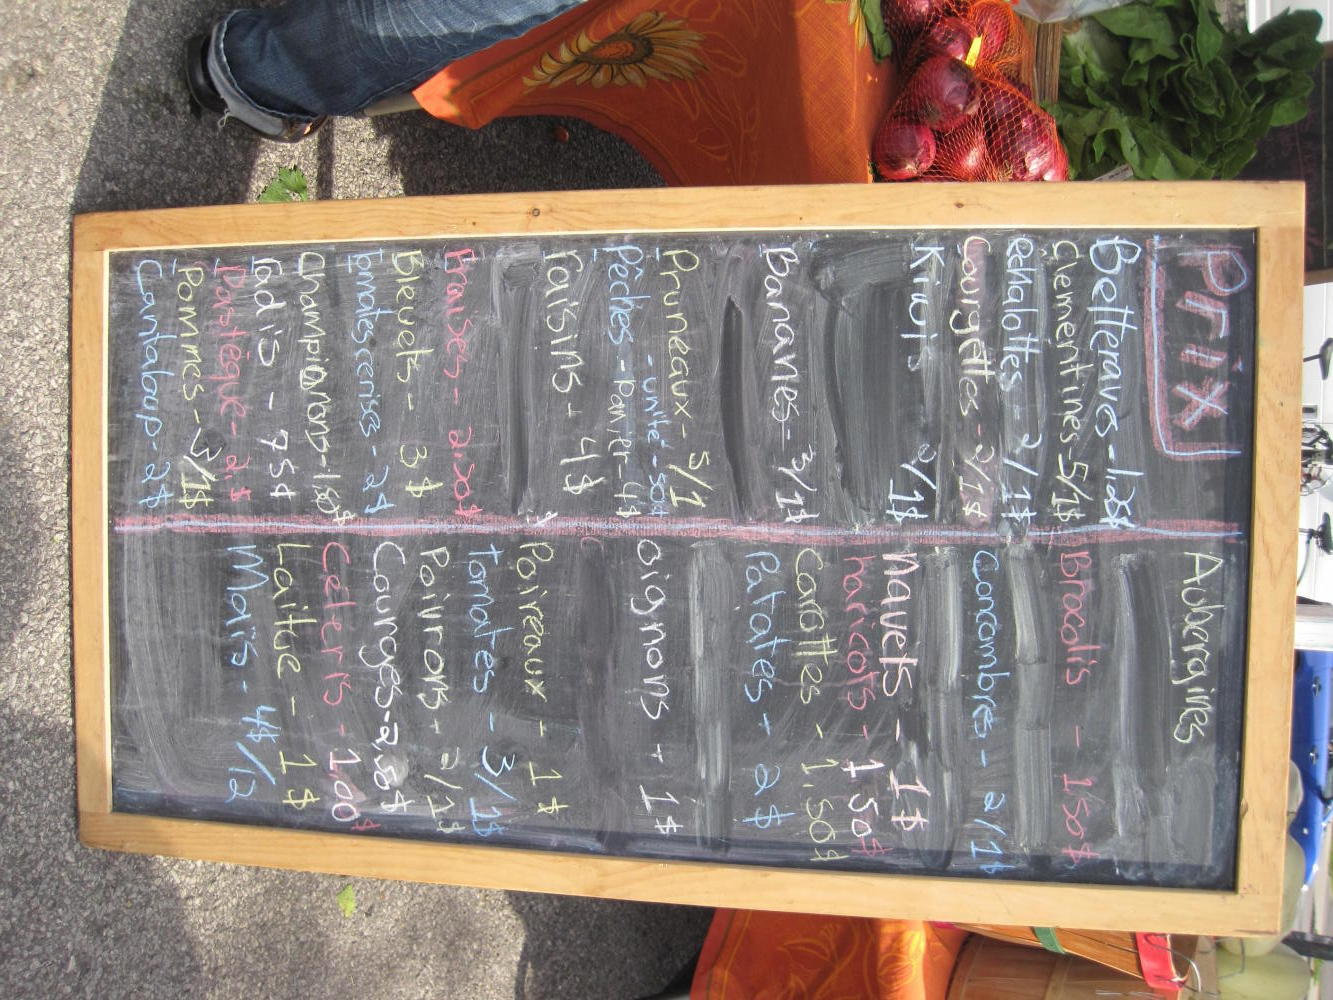 Prix
Betteraves - 1.25$
Clementines - 5/1$
echalottes - 2/1$
Courgettes - 2/1$
Kiwis 2/1$
Bananes - 3/1$
Pruneaux - 5/1
- unité - 50¢
Pêches - panier - 4$
raisins - 4$
Fraises - 2.50$
Bleuets - 3$
Tomates cerises - 2$
Champignons - 1.50$
radis - 75¢
Pastèque - 2.$
Pommes - 3/1$
Cantaloup - 2$
Aubergines
Brocolis - 1.50$
Concombres - 2/1$
navets - 1$
haricots - 1.50$
carottes - 1.50$
Patates - 2$
oignons - 1$
Poireaux - 1$
tomates - 3/1$
Poivrons - 2/1$
Courges - 2,50$
Celeris - 1,00$
Laitue - 1$
Maïs - 4$/12